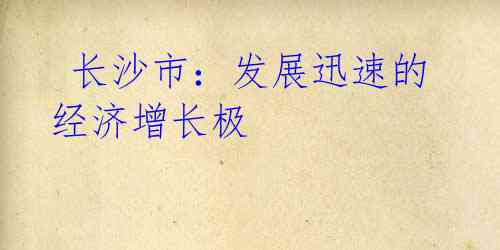 长沙市：发展迅速的
经济增长极